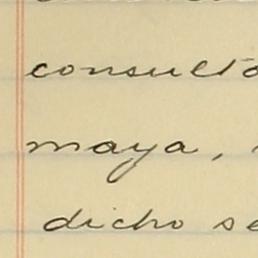 consulto
maya,
dicho se